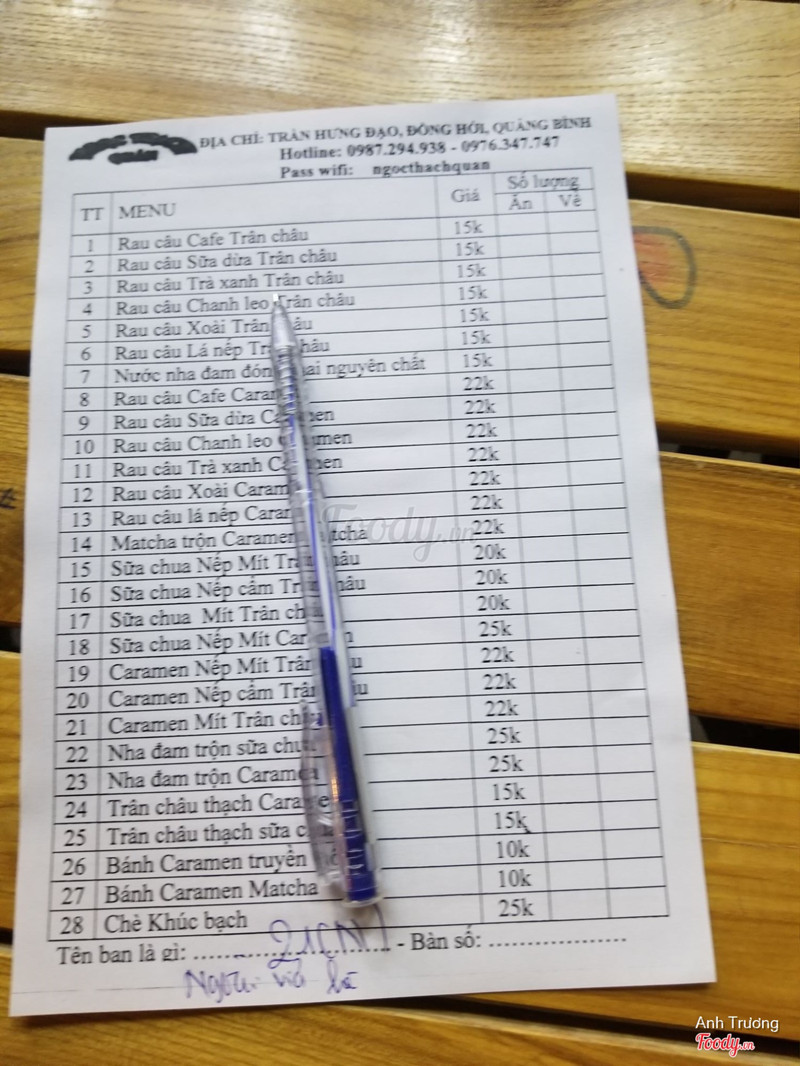 ĐỊA CHỈ: TRẦN HƯNG ĐẠO, ĐỒNG HỚI, QUẢNG BÌNH
QUÁN
Hotline: 0987.294.938 - 0976.347.747
Pass wifi: ngocthachquan
TT MENU Giá Số lượng
Ăn Về
1 Rau câu Cafe Trân châu 15k
2 Rau câu Sữa dừa Trân châu 15k
3 Rau câu Trà xanh Trân châu 15k
4 Rau câu Chanh leo Trân châu 15k
5 Rau câu Xoài Trân châu 15k
6 Rau câu Lá nếp Trân châu 15k
7 Nước nha đam đóng chai nguyên chất 15k
8 Rau câu Cafe Caramen 22k
9 Rau câu Sữa dừa Caramen 22k
10 Rau câu Chanh leo Caramen 22k
11 Rau câu Trà xanh Caramen 22k
12 Rau câu Xoài Caramen 22k
13 Rau câu lá nếp Caramen 22k
14 Matcha trộn Caramen Matcha 22k
15 Sữa chua Nếp Mít Trân châu 20k
16 Sữa chua Nếp cẩm Trân châu 20k
17 Sữa chua Mít Trân châu 20k
18 Sữa chua Nếp Mít Caramen 25k
19 Caramen Nếp Mít Trân châu 22k
20 Caramen Nếp cẩm Trân châu 22k
21 Caramen Mít Trân châu 22k
22 Nha đam trộn sữa chua 25k
23 Nha đam trộn Caramen 25k
24 Trân châu thạch Caramen 15k
25 Trân châu thạch sữa chua 15k
26 Bánh Caramen truyền 10k
27 Bánh Caramen Matcha 10k
28 Chè Khúc bạch 25k
Tên bạn là gì: ........ - Bàn số: ........
Foody.vn
Anh Trương
Foody.vn